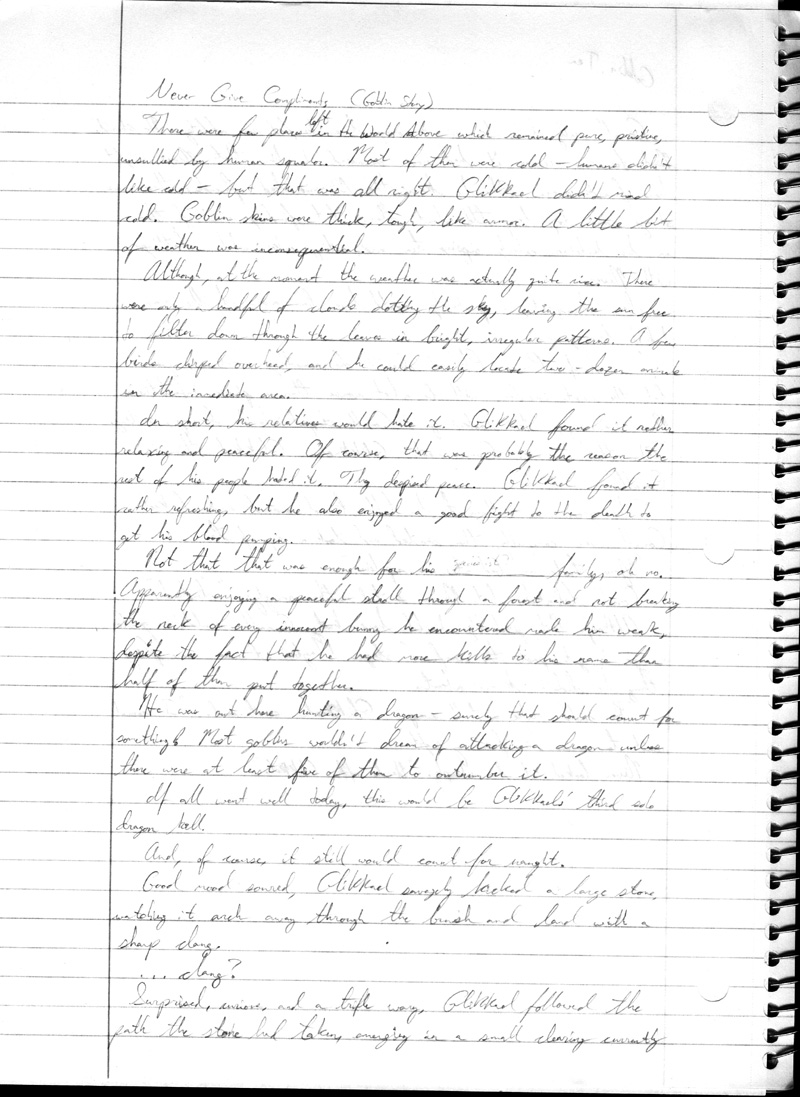 Never Give Compliments (Goblin Story)
There were few places left in the World Above which remained pure, pristine,
unsullied by human squalor. Most of them were cold – humans didn't
like cold – but that was all right. Glikkael didn't mind
cold. Goblin skins were thick, tough, like armor. A little bit
of weather was inconsequential.
Although, at the moment the weather was actually quite nice. There
were only a handful of clouds dotting the sky, leaving the sun free
to filter down through the leaves in bright, irregular patterns. A few
birds chirped overhead, and he could easily locate two-dozen animals
in the immediate area.
In short, his relatives would hate it. Glikkael found it rather
relaxing and peaceful. Of course, that was probably the reason the
rest of his people hated it. They despised peace. Glikkael found it
rather refreshing, but he also enjoyed a good fight to the death to
get his blood pumping.
Not that that was enough for his family, oh no.
Apparently enjoying a peaceful stroll through a forest and not breaking
the neck of every innocent bunny he encountered made him weak,
despite the fact that he had more kills to his name than
half of them put together.
He was out here hunting a dragon – surely that should count for
something? Most goblins wouldn't dream of attacking a dragon unless
there were at least five of them to outnumber it.
If all went well today, this would be Glikkael's third solo
dragon kill.
And, of course, it still would count for naught.
Good mood soured, Glikkael savagely kicked a large stone,
watching it arch away through the brush and land with a
sharp clang.
... clang?
Surprised, curious, and a trifle wary, Glikkael followed the
path the stone had taken, emerging in a small clearing currently